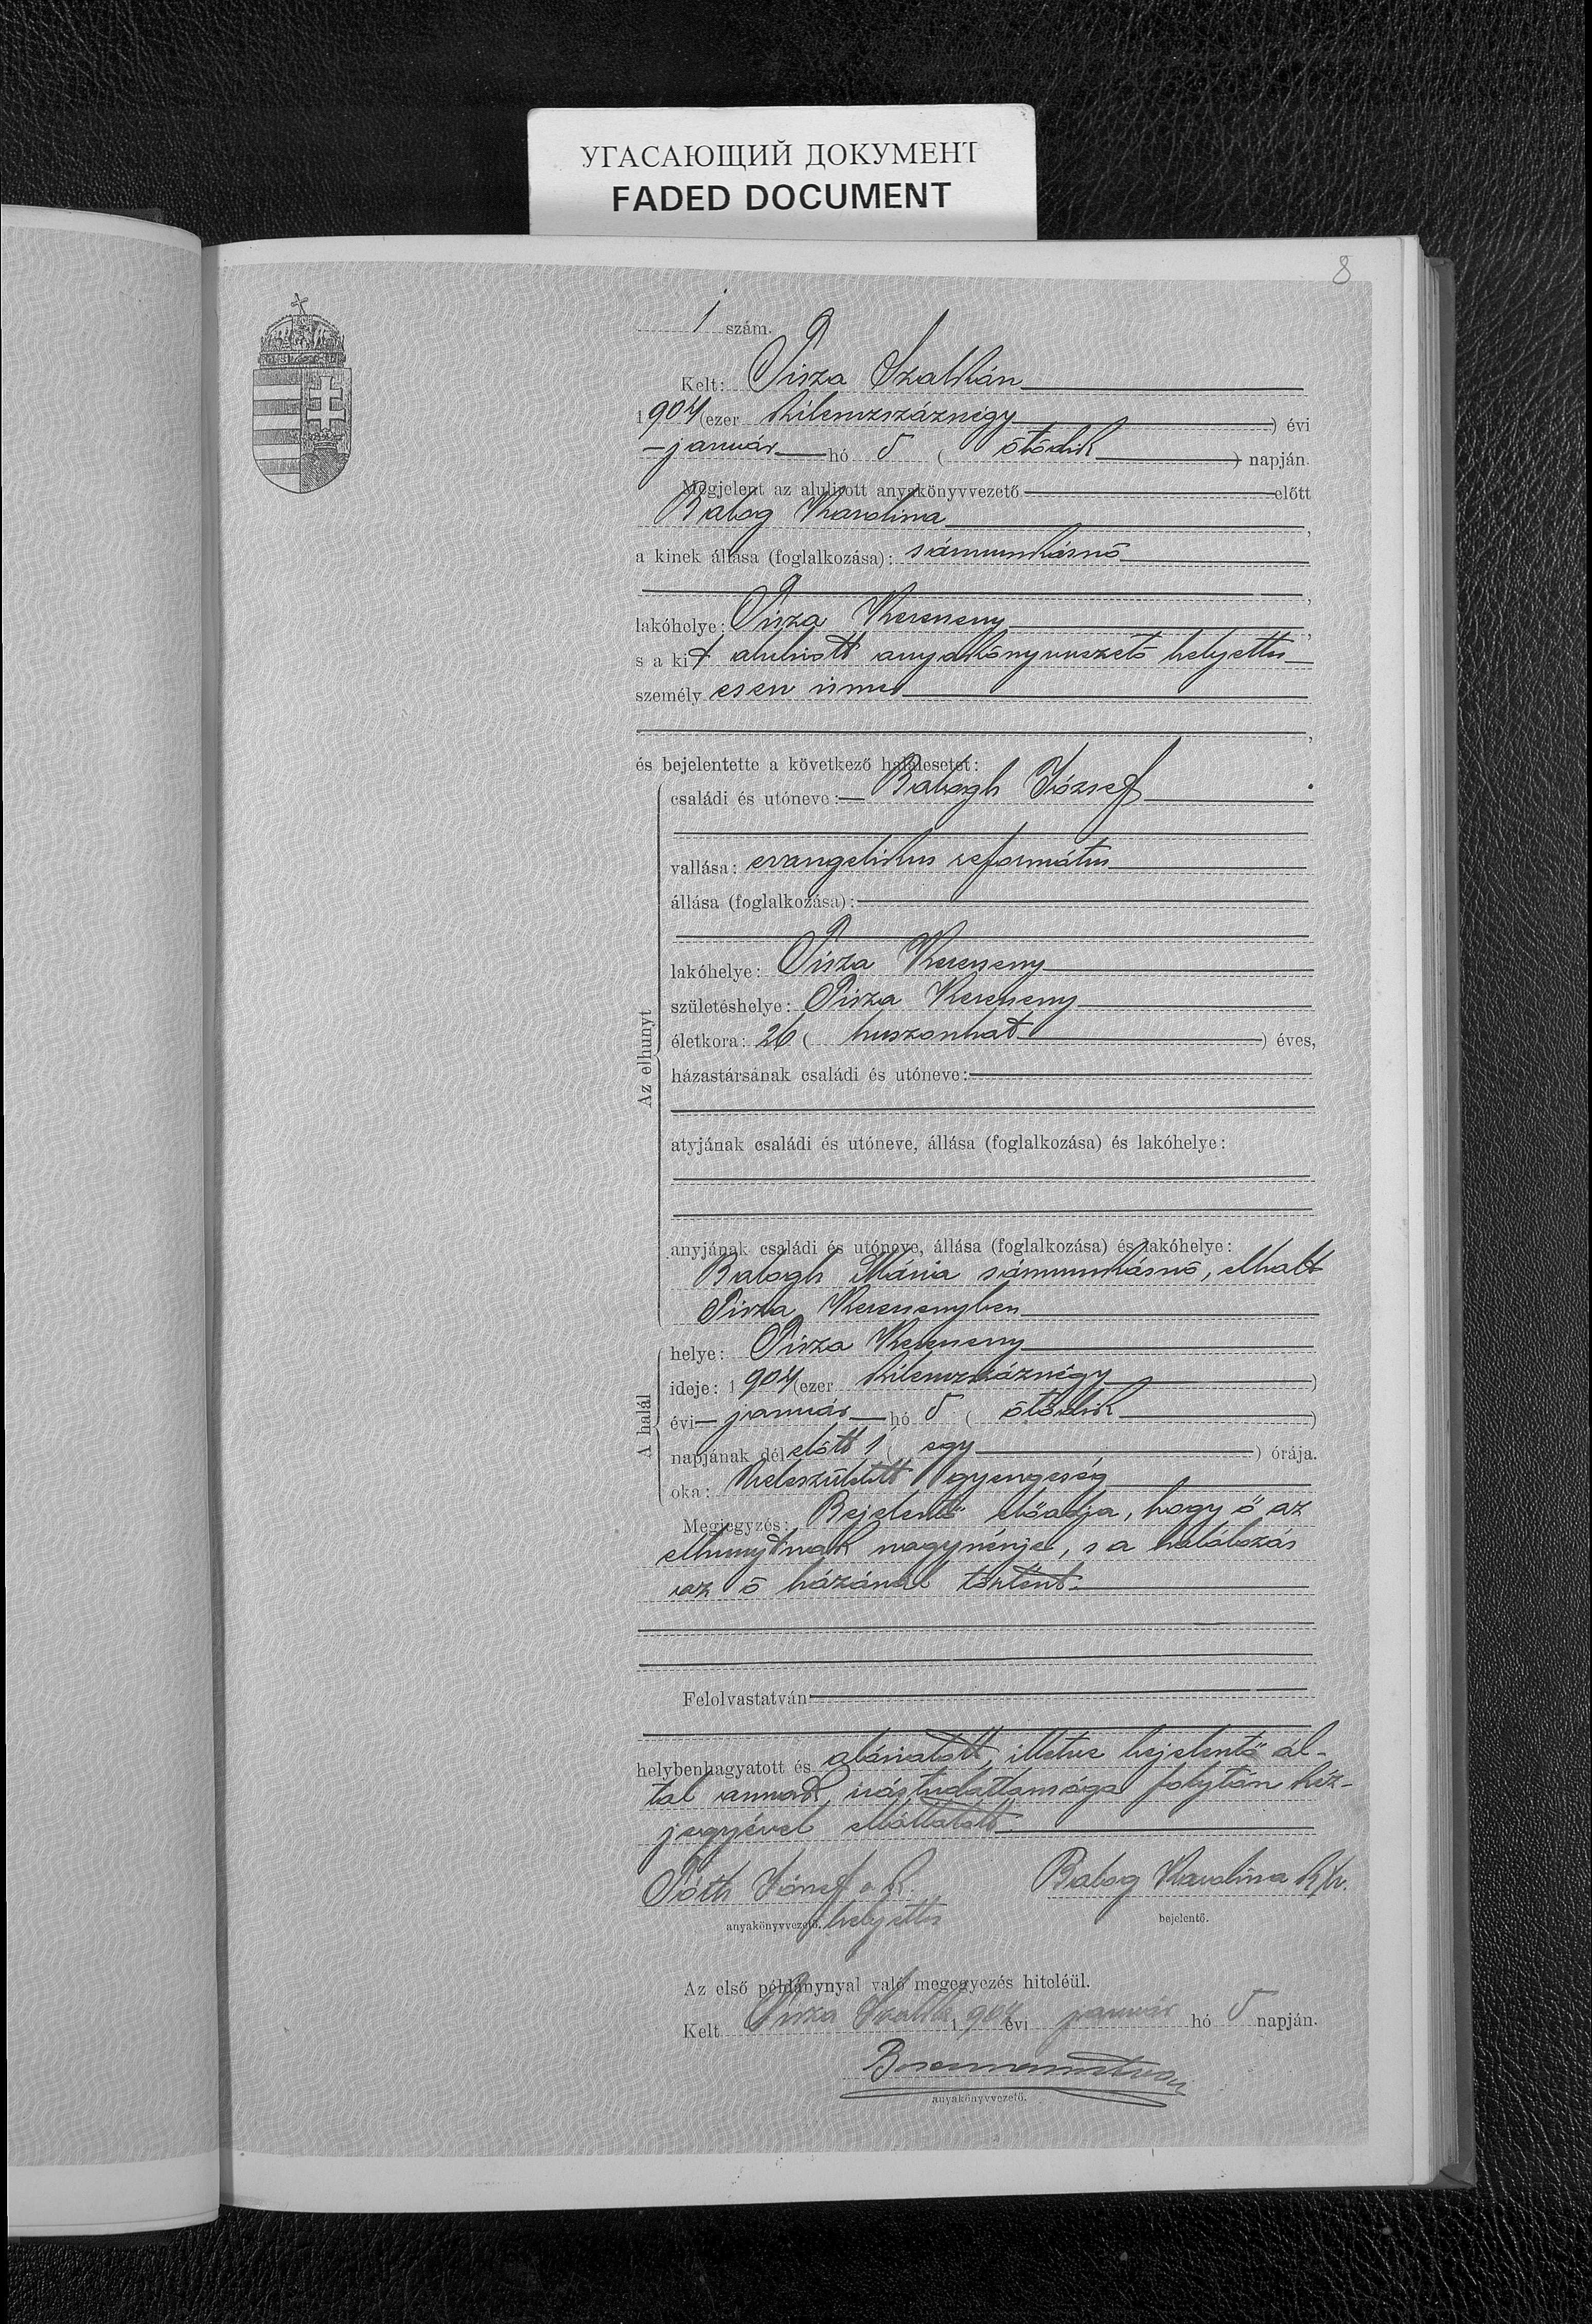 УГАСАЮЩИЙ ДОКУМЕНТ
FADED DOCUMENT
8
1 szám.
Kelt: Tisza Szalkán
1904 (ezer kilenczszáznégy) évi
január hó 5 (ötödik) napján.
Megjelent az alulirott anyakönyvvezető előtt
Balog Karolina,
a kinek állása (foglalkozása): námunkásnő
,
lakóhelye: Tisza Kerecseny,
s a kit alulirott anyakönyvvezető helyettes
személyesen ismer
,
és bejelentette a következő halálesetet:
családi és utóneve: Balogh József
vallása: evangelikus református
állása (foglalkozása):
lakóhelye: Tisza Kerecseny
születéshelye: Tisza Kerecseny
Az elhunyt
életkora: 26 (huszonhat) éves,
házastársának családi és utóneve:
atyjának családi és utóneve, állása (foglalkozása) és lakóhelye:
anyjának családi és utóneve, állása (foglalkozása) és lakóhelye:
Balogh Mária námunkásnő, elhalt
Tisza Kerecsenyben
helye: Tisza Kerecseny
ideje: 1904 (ezer kilenczszáznégy)
A halál
évi január hó 5 (ötödik)
napjának délelőtt 1 (egy) órája.
oka: Veleszületett gyengeség
Megjegyzés: Bejelentő előadja, hogy ő az
elhunytnak nagynénje, s a halálozás
az ő házánál történt.
Felolvastatván
helybenhagyatott és aláiratott, illetve bejelentő ál-
tal annak irástudatlansága folytán kéz-
jegyével elláttatott.
Tóth József s. k. Balog Karolina k/v.
anyakönyvvezető. helyettes bejelentő.
Az első példánynyal való megegyezés hiteléül.
Kelt Tisza Szalka 1904 évi január hó 5 napján.
anyakönyvvezető.